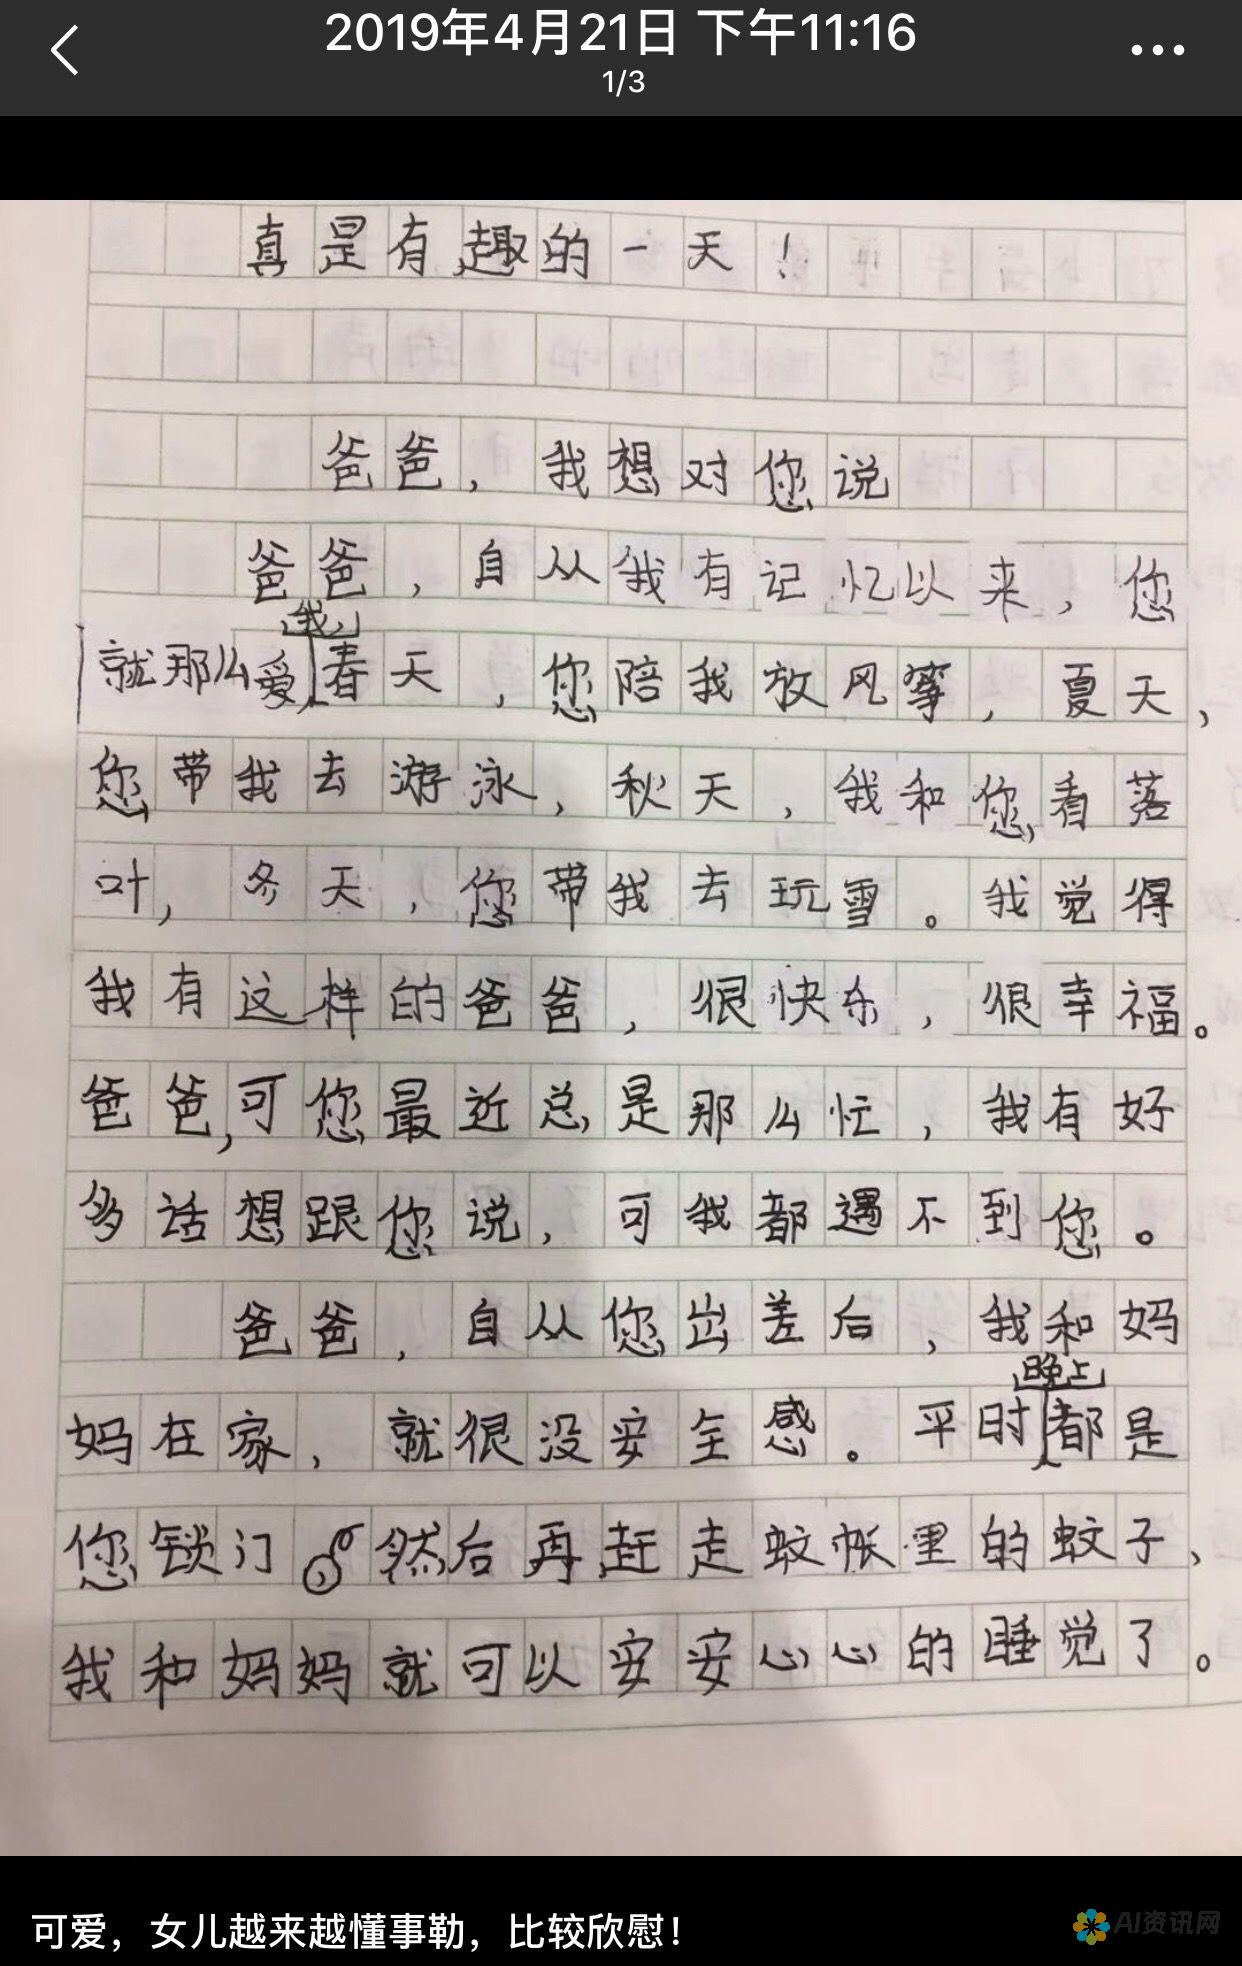 2019年4月21日 下午11:16
1/3
真是有趣的一天！
爸爸，我想对您说
爸爸，自从我有记忆以来，您
我，
就那么爱春天，您陪我放风筝，夏天，
您带我去游泳，秋天，我和您看落
叶，冬天，您带我去玩雪。我觉得
我有这样的爸爸，很快乐，很幸福。
爸爸，可您最近总是那么忙，我有好
多话想跟您说，可我都遇不到您。
爸爸，自从您出差后，我和妈
晚上
妈在家，就很没安全感。平时都是
您锁门然后再赶走蚊帐里的蚊子、
我和妈妈就可以安安心心的睡觉了。
可爱，女儿越来越懂事勒，比较欣慰！
AI资讯网